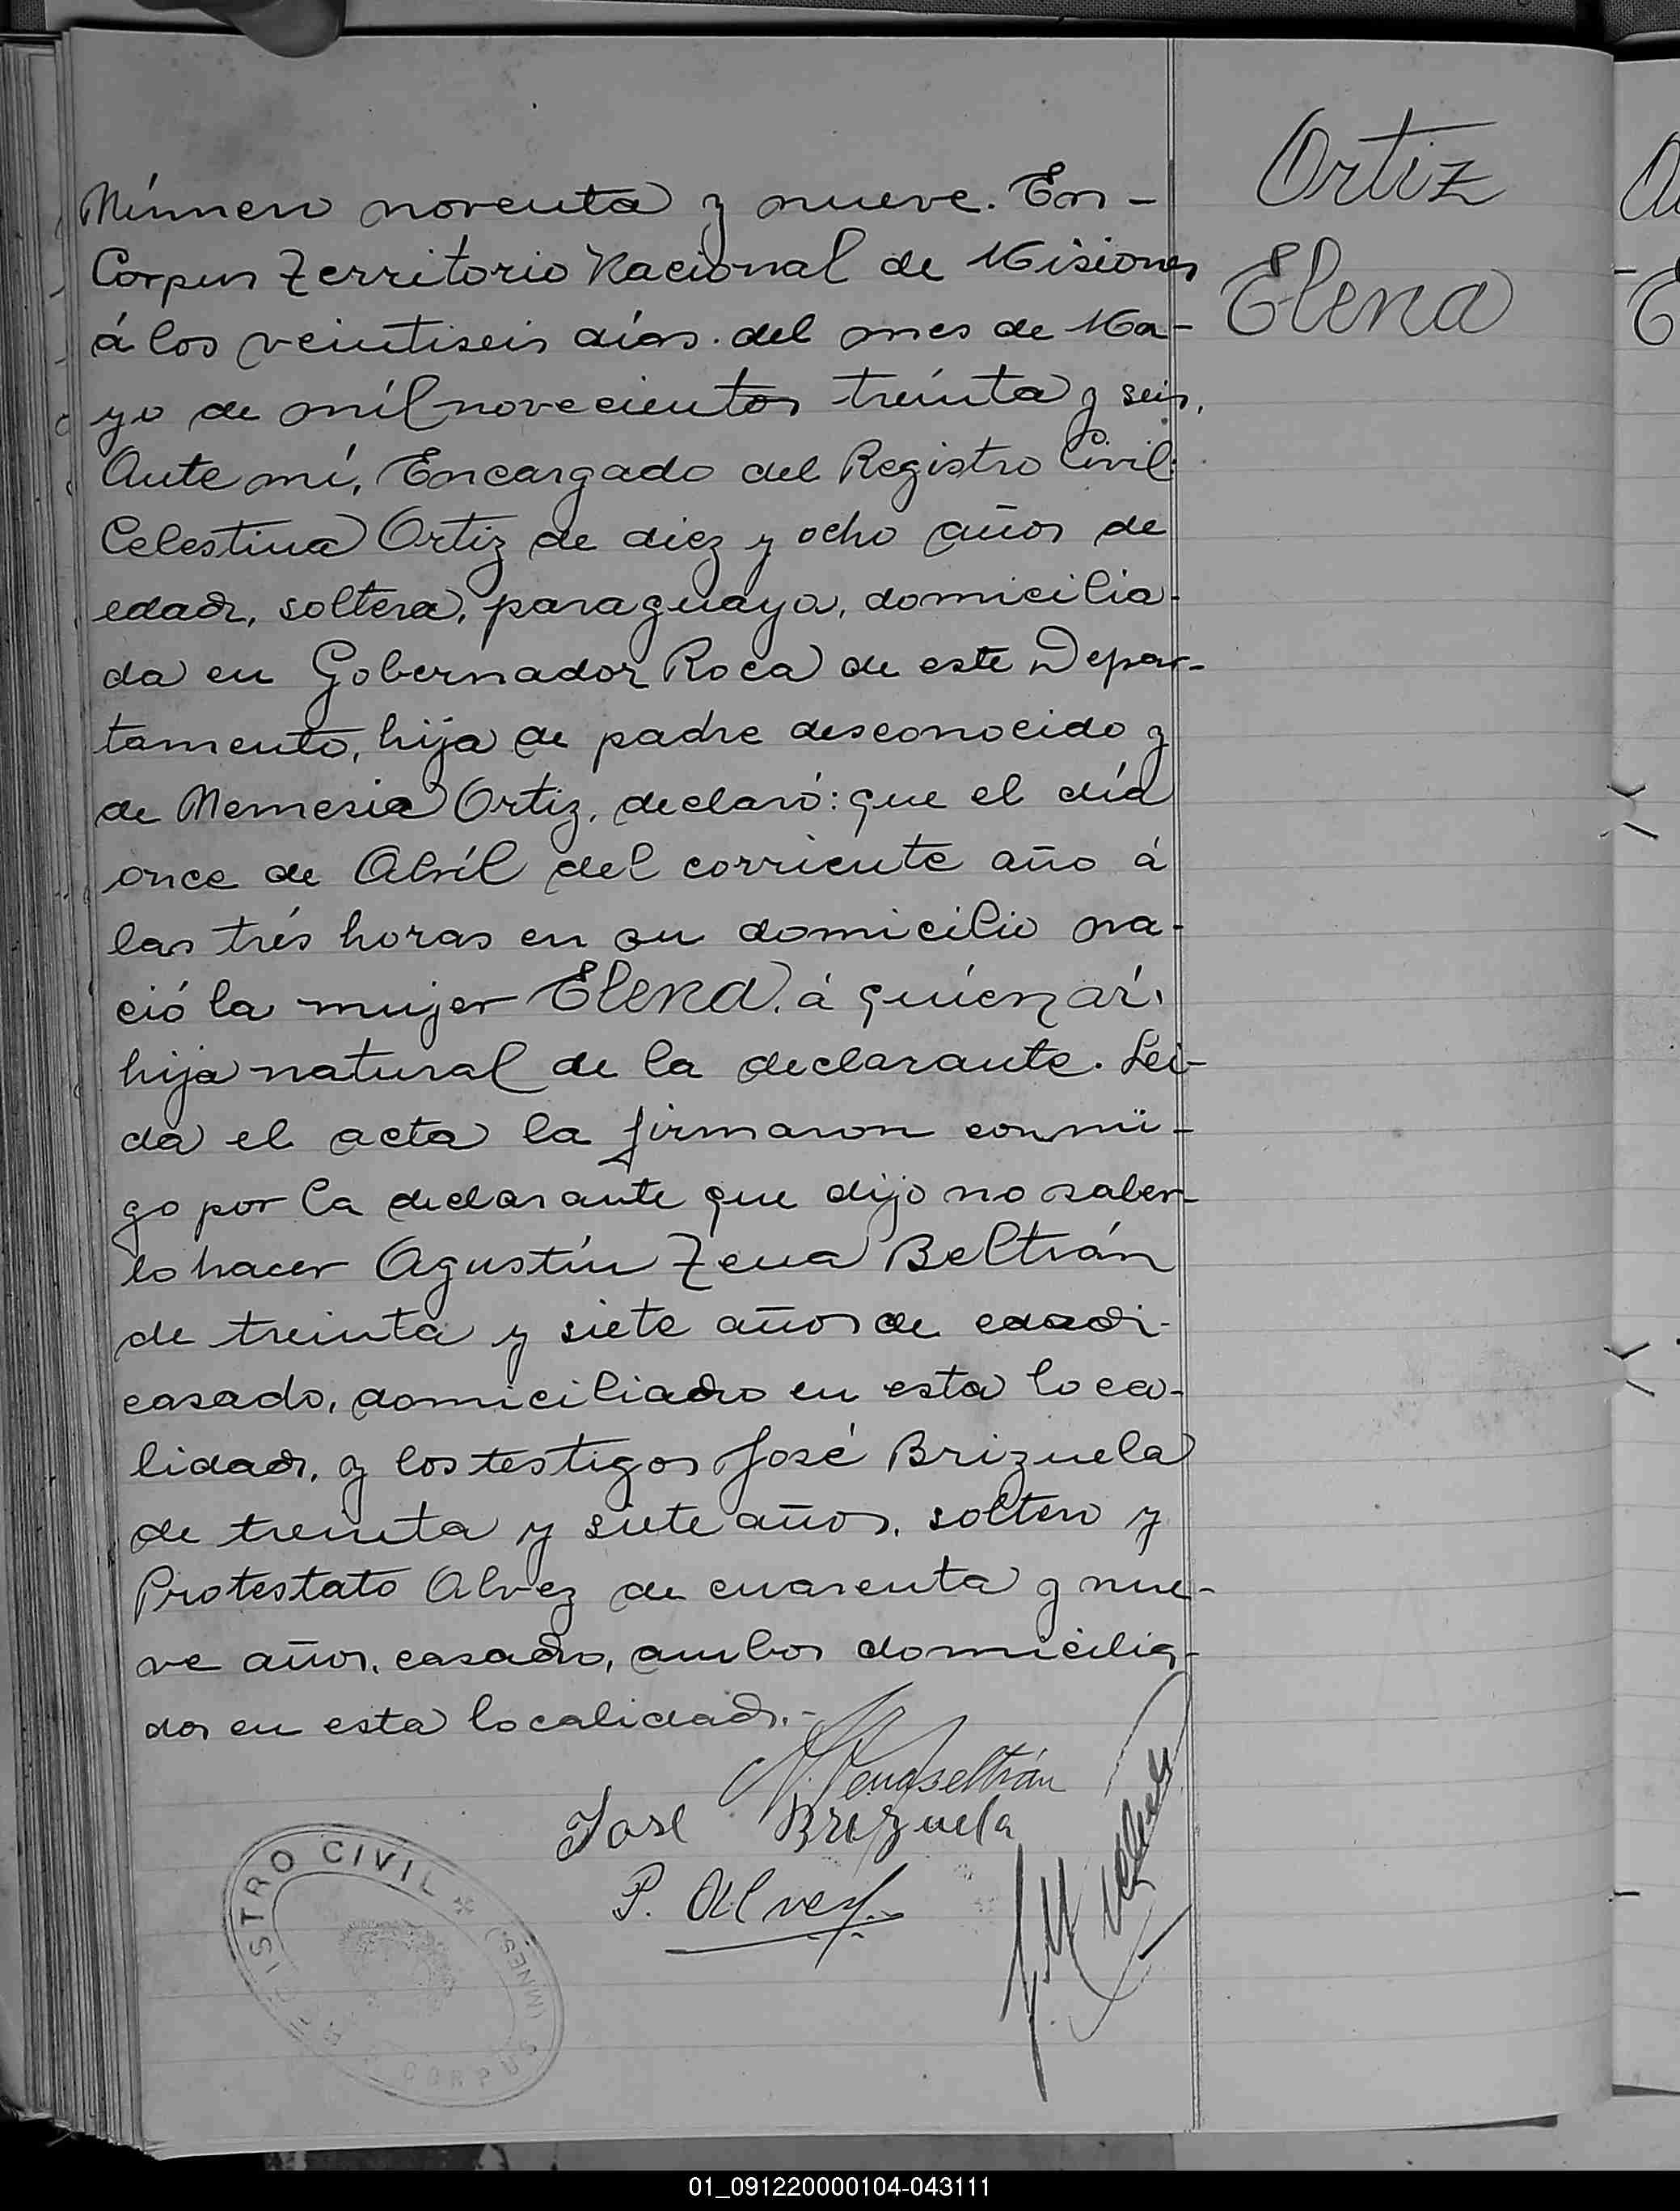 Número noventa y nueve. En-
Corpus Territorio Nacional de Misiones
á los veintiseis días. del mes de Ma-
yo de mil novecientos treinta y seis.
Ante mí, Encargado del Registro Civil
Celestina Ortiz de diez y ocho años de
edad, soltera, paraguaya, domicilia-
da en Gobernador Roca de este Depar-
tamento, hija de padre desconocido y
de Nemesia Ortiz, declaró: que el día
once de Abril del corriente año á
las trés horas en su domicilio na-
ció la mujer Elena, á quien
hija natural de la declarante. Lei-
da el acta la firmaron conmi-
go por la declarante que dijo no saber-
lo hacer Agustín Zena Beltrán
de treinta y siete años de edad
casado, domiciliado en esta loca-
lidad, y los testigos José Brizuela
de treinta y siete años, soltero y
Protestato Alvez de cuarenta y nue-
ve años, casado, ambos domicilia-
dos en esta localidad.-
Ortiz
Elena
José Brizuela
P. Alvez
REGISTRO CIVIL * CORPUS (MNES)
01_091220000104-043111